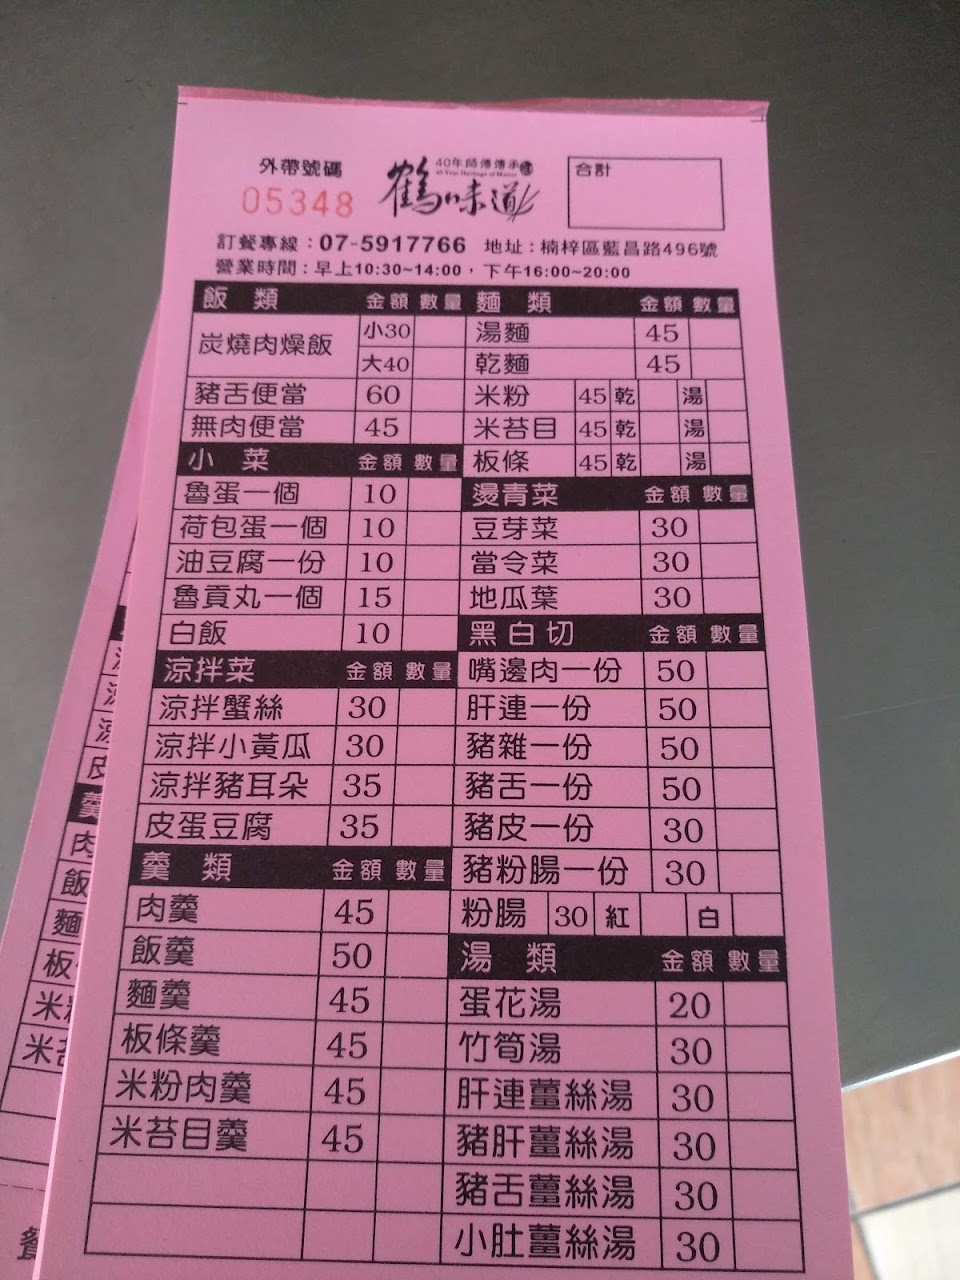 外帶號碼
05348
40年師傅傳承
40 Year Heritage of Master
鶴味道
合計
訂餐專線：07-5917766 地址：楠梓區藍昌路496號
營業時間：早上10:30~14:00，下午16:00~20:00
飯 類 金額 數量
炭燒肉燥飯 小30
大40
豬舌便當 60
無肉便當 45
小 菜 金額 數量
魯蛋一個 10
荷包蛋一個 10
油豆腐一份 10
魯貢丸一個 15
白飯 10
涼拌菜 金額 數量
涼拌蟹絲 30
涼拌小黃瓜 30
涼拌豬耳朵 35
皮蛋豆腐 35
羹 類 金額 數量
肉羹 45
飯羹 50
麵羹 45
板條羹 45
米粉肉羹 45
米苔目羹 45
麵 類 金額 數量
湯麵 45
乾麵 45
米粉 45 乾 湯
米苔目 45 乾 湯
板條 45 乾 湯
燙青菜 金額 數量
豆芽菜 30
當令菜 30
地瓜葉 30
黑白切 金額 數量
嘴邊肉一份 50
肝連一份 50
豬雜一份 50
豬舌一份 50
豬皮一份 30
豬粉腸一份 30
粉腸 30 紅 白
湯 類 金額 數量
蛋花湯 20
竹筍湯 30
肝連薑絲湯 30
豬肝薑絲湯 30
豬舌薑絲湯 30
小肚薑絲湯 30
皮
羹
肉
飯
麵
板
米
米苔